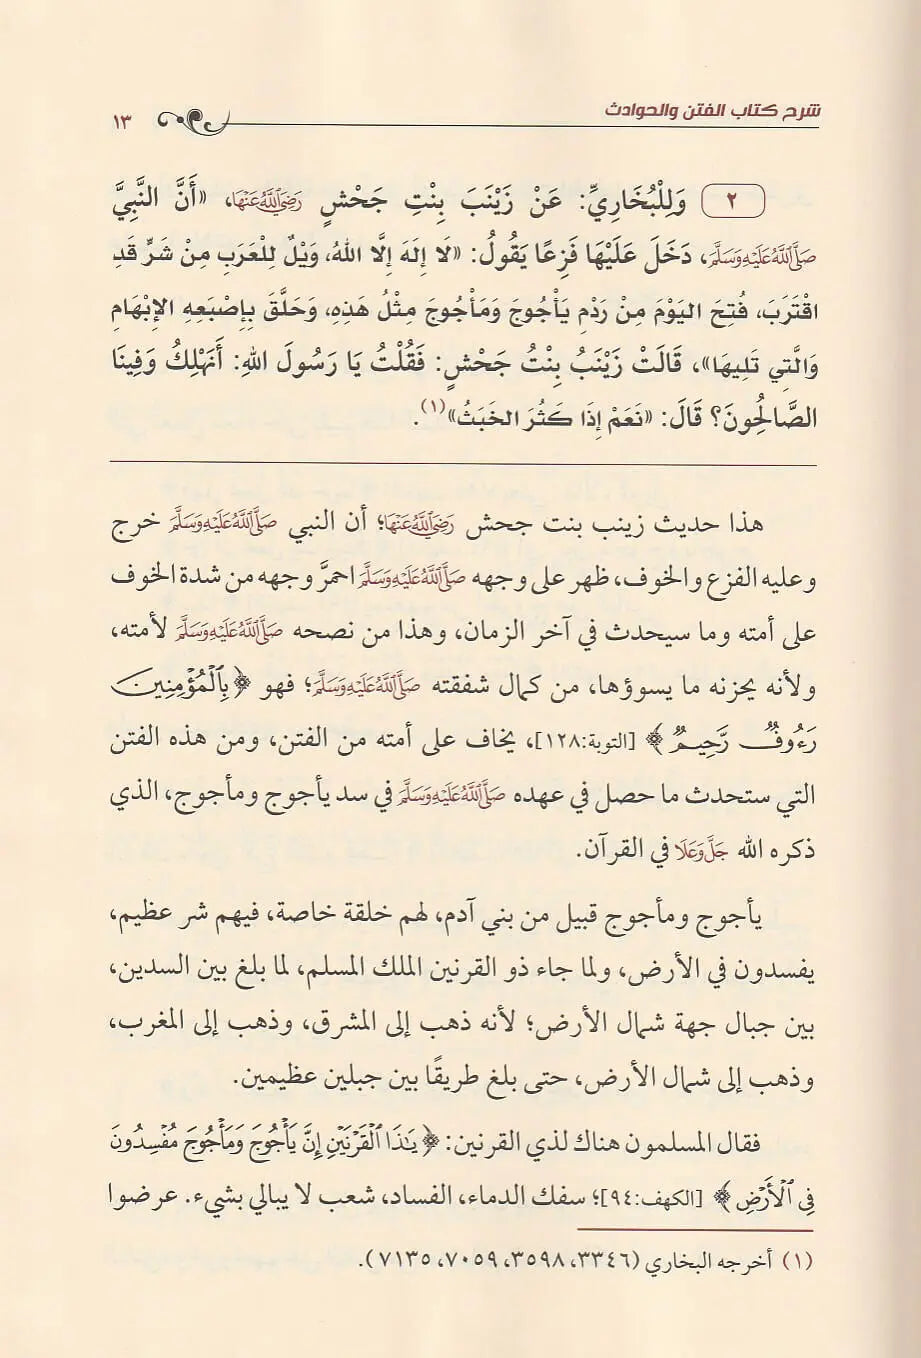 شرح كتاب الفتن والحوادث ١٣
٢ وَلِلْبُخَارِيِّ: عَنْ زَيْنَبَ بِنْتِ جَحْشٍ رَضِيَ اللَّهُ عَنْهَا، «أَنَّ النَّبِيَّ
صَلَّى اللَّهُ عَلَيْهِ وَسَلَّمَ، دَخَلَ عَلَيْهَا فَزِعًا يَقُولُ: «لَا إِلَهَ إِلَّا اللهُ، وَيْلٌ لِلْعَرَبِ مِنْ شَرٍّ قَدِ
اقْتَرَبَ، فُتِحَ اليَوْمَ مِنْ رَدْمِ يَأْجُوجَ وَمَأْجُوجَ مِثْلُ هَذِهِ، وَحَلَّقَ بِإِصْبَعِهِ الإِبْهَامِ
وَالَّتِي تَلِيهَا»، قَالَتْ زَيْنَبُ بِنْتُ جَحْشٍ: فَقُلْتُ يَا رَسُولَ اللهِ: أَنَهْلِكُ وَفِينَا
الصَّالِحُونَ؟ قَالَ: «نَعَمْ إِذَا كَثُرَ الخَبَثُ»(١).
هذا حديث زينب بنت جحش رَضِيَ اللَّهُ عَنْهَا؛ أن النبي صَلَّى اللَّهُ عَلَيْهِ وَسَلَّمَ خرج
وعليه الفزع والخوف، ظهر على وجهه صَلَّى اللَّهُ عَلَيْهِ وَسَلَّمَ احمرَّ وجهه من شدة الخوف
على أمته وما سيحدث في آخر الزمان، وهذا من نصحه صَلَّى اللَّهُ عَلَيْهِ وَسَلَّمَ لأمته،
ولأنه يحزنه ما يسوؤها، من كمال شفقته صَلَّى اللَّهُ عَلَيْهِ وَسَلَّمَ؛ فهو ﴿بِٱلْمُؤْمِنِينَ
رَءُوفٌ رَّحِيمٌ﴾ [التوبة:١٢٨]، يخاف على أمته من الفتن، ومن هذه الفتن
التي ستحدث ما حصل في عهده صَلَّى اللَّهُ عَلَيْهِ وَسَلَّمَ في سد يأجوج ومأجوج، الذي
ذكره الله جَلَّ وَعَلَا في القرآن.
يأجوج ومأجوج قبيل من بني آدم، لهم خلقة خاصة، فيهم شر عظيم،
يفسدون في الأرض، ولما جاء ذو القرنين الملك المسلم، لما بلغ بين السدين،
بين جبال جهة شمال الأرض؛ لأنه ذهب إلى المشرق، وذهب إلى المغرب،
وذهب إلى شمال الأرض، حتى بلغ طريقًا بين جبلين عظيمين.
فقال المسلمون هناك لذي القرنين: ﴿يَٰذَا ٱلْقَرْنَيْنِ إِنَّ يَأْجُوجَ وَمَأْجُوجَ مُفْسِدُونَ
فِي ٱلْأَرْضِ﴾ [الكهف:٩٤]؛ سفك الدماء، الفساد، شعب لا يبالي بشيء. عرضوا
(١) أخرجه البخاري (٣٣٤٦، ٣٥٩٨، ٧٠٥٩، ٧١٣٥).